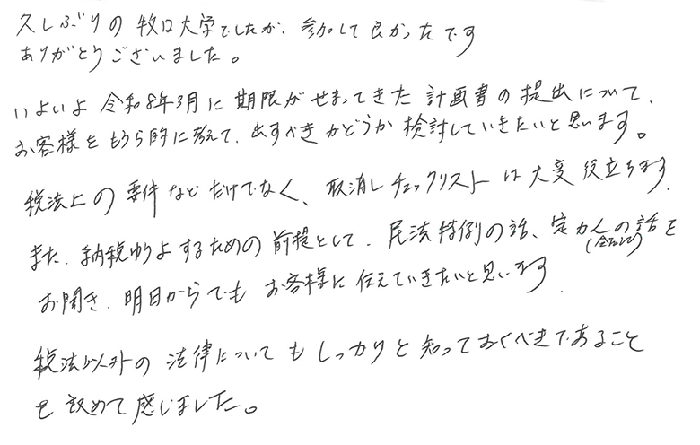 久しぶりの牧口大学でしたが、参加して良かったです
ありがとうございました。
いよいよ令和8年3月に期限がせまってきた計画書の提出について、
お客様をもうら的に考えて、出すべきかどうか検討していきたいと思います。
税法上の要件などだけでなく、取消しチェックリストは大変役立ちます。
また、納税猶予するための前提として、民法特例の話、定かんの話を
(会社法)
お聞き、明日からでもお客様に伝えていきたいと思います。
税法以外の法律についてもしっかりと知っておくべきであること
を改めて感じました。